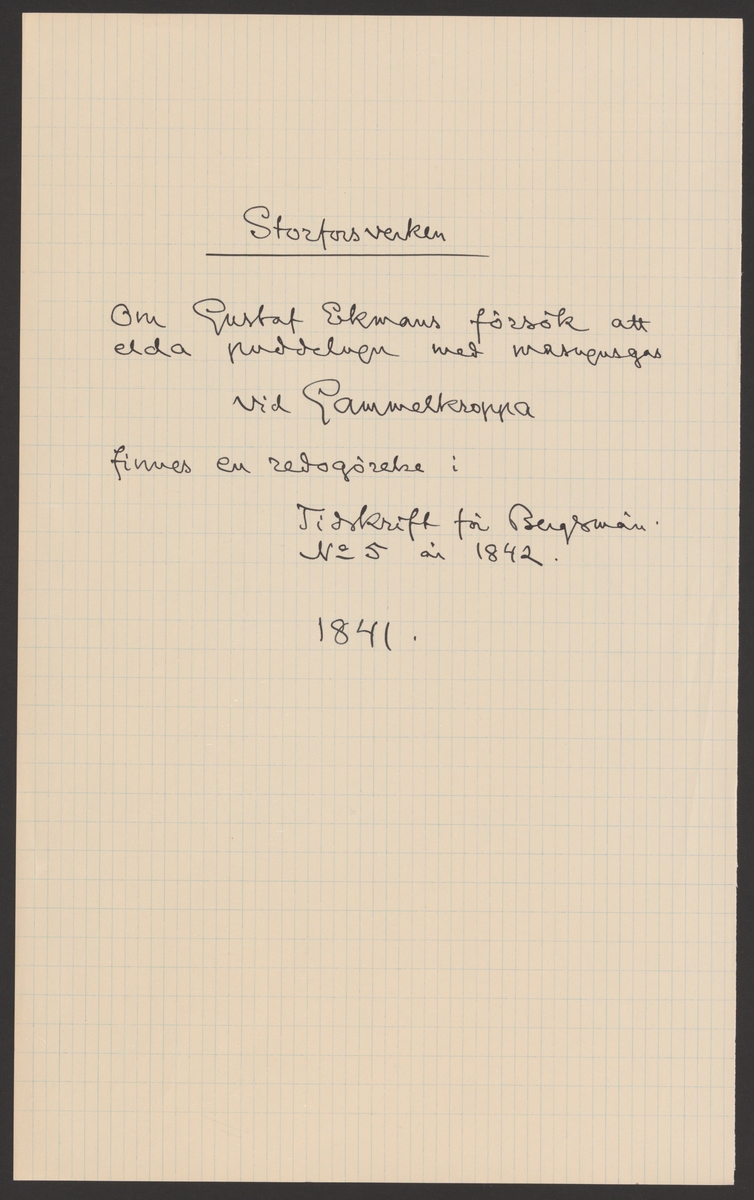 Storforsverken
Om Gustaf Ekmans försök att
elda puddelugn med masugnsgas
vid Gammelkroppa
finnes en redogörelse i
Tidskrift för Bergsmän.
No 5 år 1842.
1841.